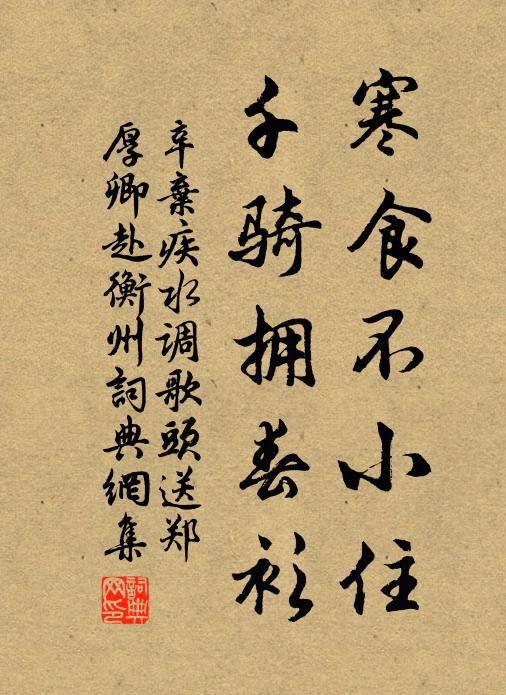 寒食不小住
千骑拥春衫
辛棄疾水调歌頭送郑
厚卿赴衡州詞典網集
詞典
网印